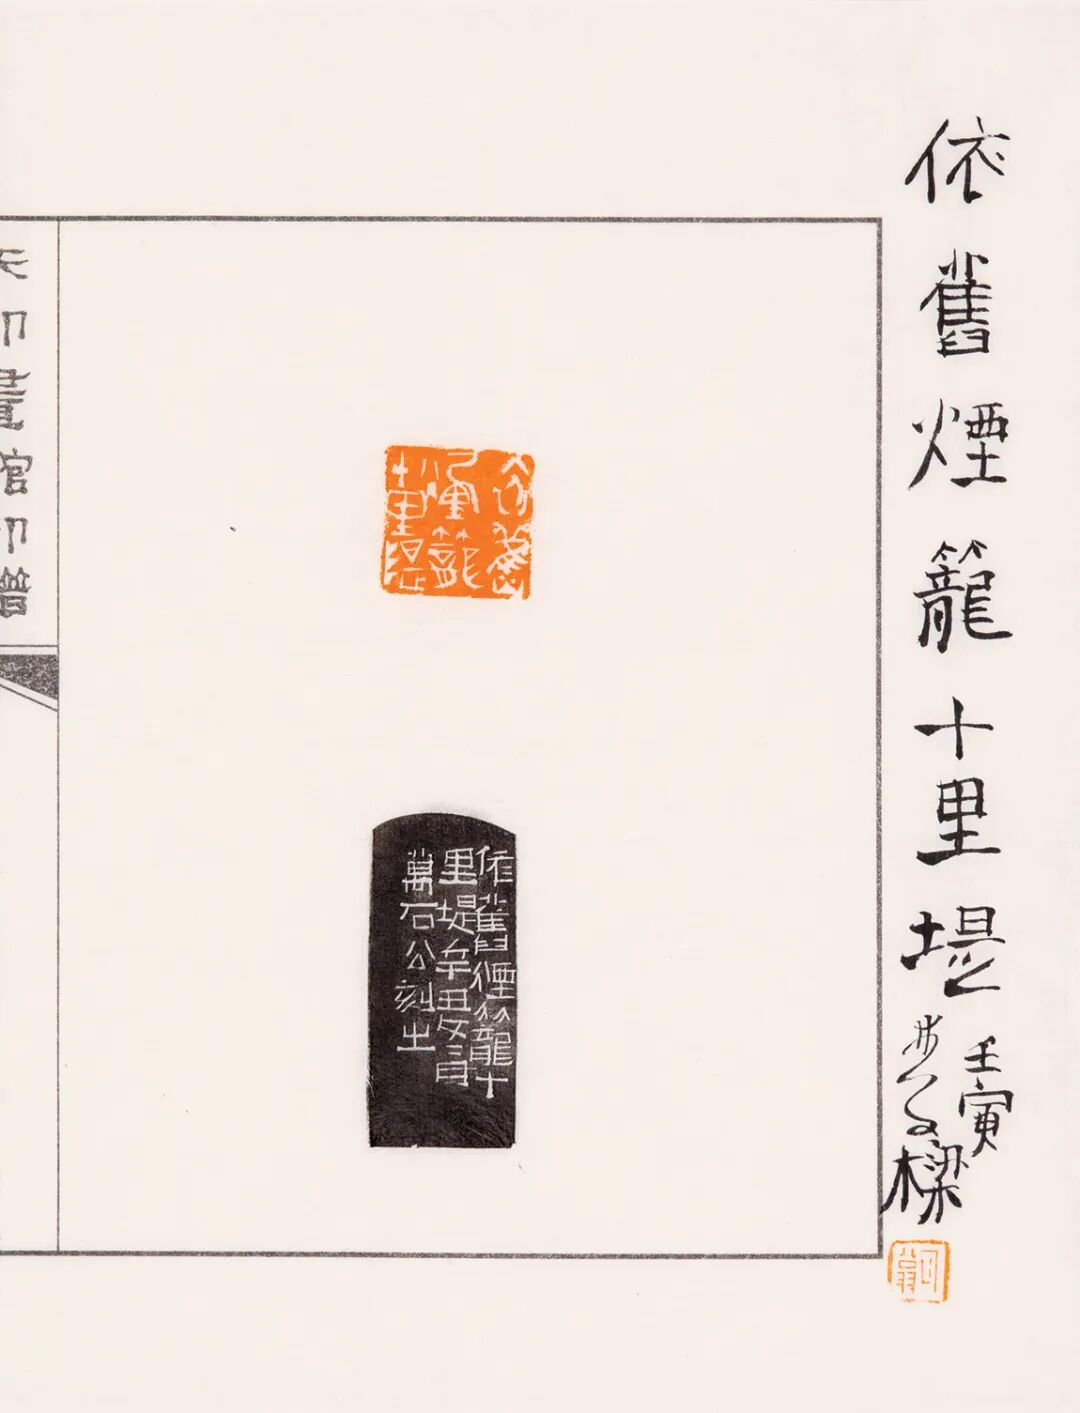 依舊煙籠十里堤
壬寅
樑
依舊煙籠十里堤
依舊煙籠十
里堤辛丑夂三月
萬石公刻之
天印畫館印譜